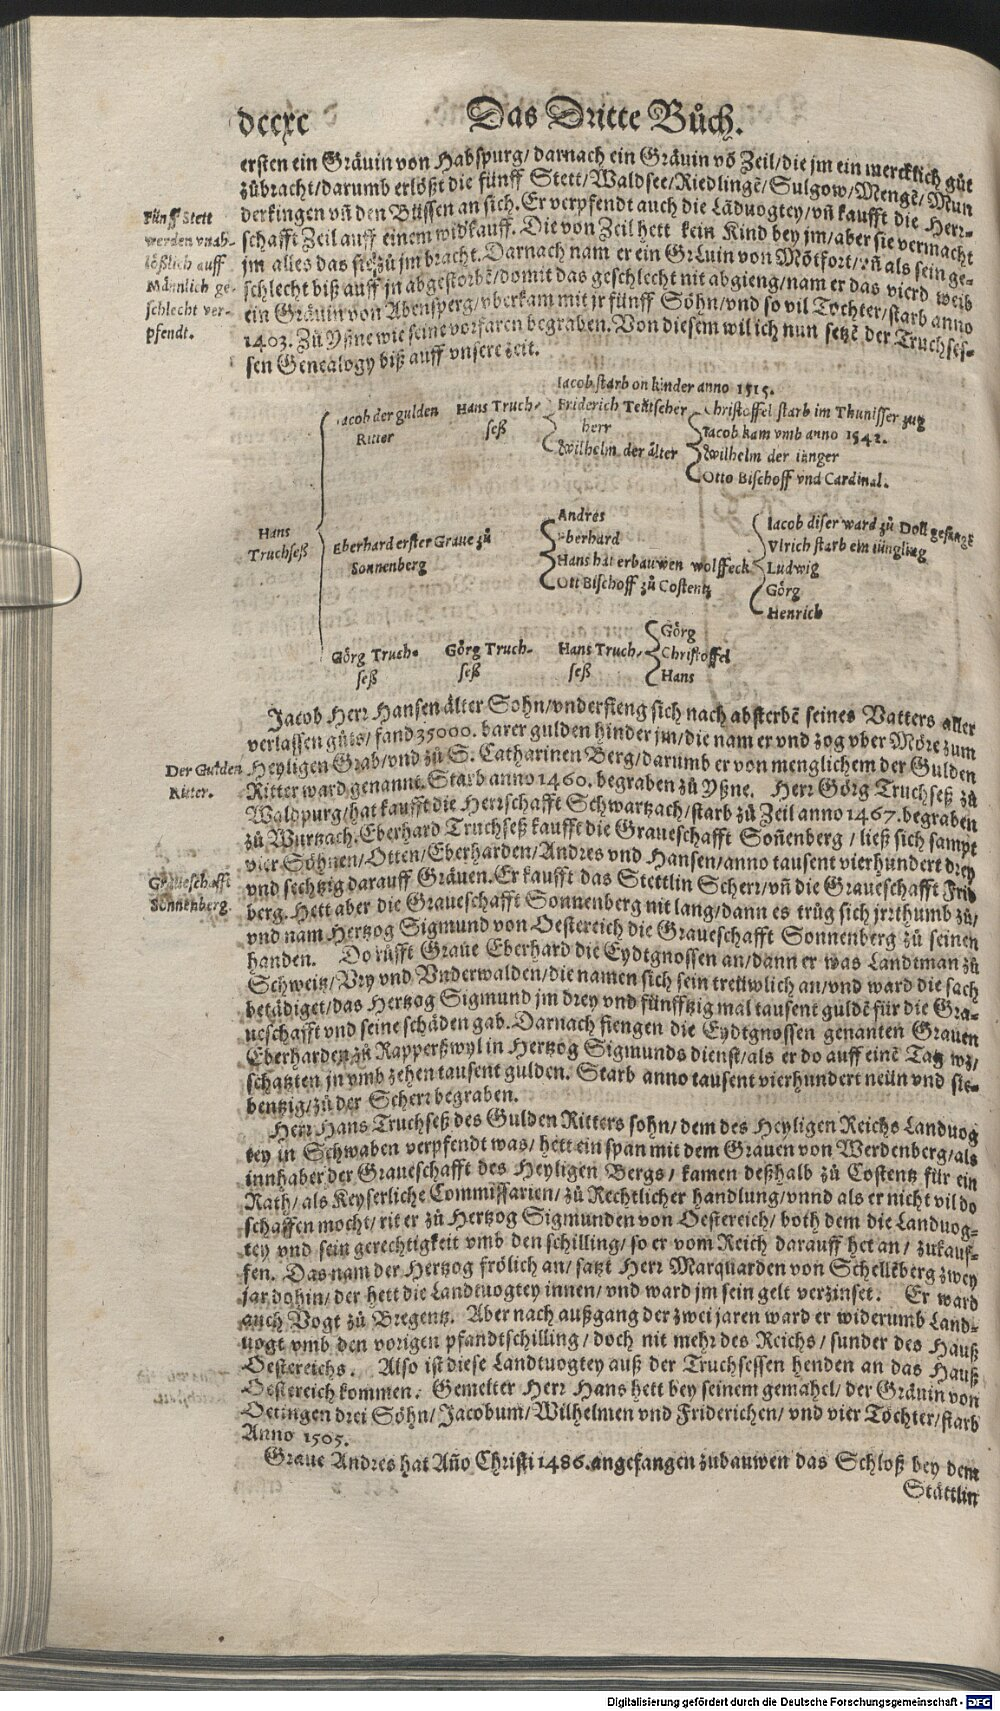 dccxc
Das Dritte Bůch.
ersten ein Gråuin von Habspurg/ darnach ein Gråuin võ Zeil/ die jm ein mercklich gůt
zůbracht/ darumb erlößt die fünff Stett/ Waldsee/ Riedlingẽ/ Sulgow/ Mengẽ/ Mun
derkingen vñ den Büssen an sich. Er verpfendt auch die Lãduogtey/ vñ kaufft die Herr-
schafft Zeil auff einem widkauff. Die von Zeil hett kein Kind bey jm/ aber sie vermacht
jm alles das sie zů jm bracht. Darnach nam er ein Gråuin von Mõtfort/ vñ als sein ge-
schlecht biß auff jn abgestorbẽ/ domit das geschlecht nit abgieng/ nam er das vierd weib
ein Gråuin von Abensperg/ vberkam mit jr fünff Söhn/ vnd so vil Tochter/ starb anno
1403. Zů Yßne wie seine vorfaren begraben. Von diesem wil ich nun setzẽ der Truchses-
sen Genealogy biß auff vnsere zeit.
Fünff Stett
werden vnab-
lößlich auff
Mãnlich ge-
schlecht ver-
pfendt.
Iacob starb on kinder anno 1515.
Iacob der gulden Hans Truch- Friderich Teütscher Christoffel starb im Thunisser zug
Ritter seß herr Iacob kam vmb anno 1542.
Wilhelm der ålter Wilhelm der iünger
Otto Bischoff vnd Cardinal.
Hans Truchseß
Eberhard erster Graue zů
Sonnenberg
Andres
Eberhard
Hans hat erbauwen wolffeck
Ott Bischoff zů Costentz
Iacob diser ward zů Doll gefangẽ
Vlrich starb ein iüngling
Ludwig
Görg
Henrich
Görg Truch- Görg Truch- Hans Truch- Görg
seß seß seß Christoffel
Hans
Jacob Herr Hansen ålter Sohn/ vndersteng sich nach absterbẽ seines Vatters aller
verlassen gůts/ fand 35000. barer gulden hinder jm/ die nam er vnd zog vber Möre zum
Heyligen Grab/ vnd zů S. Catharinen Berg/ darumb er von menglichem der Gulden
Ritter ward genannt. Starb anno 1460. begraben zů Yßne. Herr Görg Truchseß zů
Waldpurg/ hat kaufft die Herrschafft Schwartzach/ starb zů Zeil anno 1467. begraben
zů Wurtzach. Eberhard Truchseß kaufft die Graueschafft Soñenberg/ ließ sich sampt
vier Söhnen/ Otten/ Eberharden/ Andres vnd Hansen/ anno tausent vierhundert drey
vnd sechtzig darauff Gråuen. Er kaufft das Stettlin Scherr/ vñ die Graueschafft Frid
berg. Hett aber die Graueschafft Sonnenberg nit lang/ dann es trůg sich jrrthumb zů/
vnd nam Hertzog Sigmund von Oestereich die Graueschafft Sonnenberg zů seinen
handen. Do růfft Graue Eberhard die Eydtgnossen an/ dann er was Landtman zů
Schweitz/ Vry vnd Vnderwalden/ die namen sich sein treüwlich an/ vnd ward die sach
betådiget/ das Hertzog Sigmund jm drey vnd fünfftzig mal tausent guldẽ für die Gra-
ueschafft vnd seine schåden gab. Darnach fiengen die Eydtgnossen genanten Grauen
Eberharden zů Rapperßwyl in Hertzog Sigmunds dienst/ als er do auff einẽ Tag wz/
schatzten jn vmb zehen tausent gulden. Starb anno tausent vierhundert neün vnd sie-
bentzig/ zů der Scherr begraben.
Der Gulden
Ritter.
Graueschafft
Sonnenberg.
Herr Hans Truchseß des Gulden Ritters sohn/ dem des Heyligen Reichs Landuog
tey in Schwaben verpfendt was/ hett ein span mit dem Grauen von Werdenberg/ als
innhaber der Graueschafft des Heyligen Bergs/ kamen deßhalb zů Costentz für ein
Rath/ als Keyserliche Commissarien/ zů Rechtlicher handlung/ vnnd als er nicht vil do
schaffen mocht/ rit er zů Hertzog Sigmunden von Oestereich/ both dem die Landuog-
tey vnd sein gerechtigkeit vmb den schilling/ so er vom Reich darauff het an/ zukauf-
fen. Das nam der Hertzog frölich an/ satzt Herr Marquarden von Schellẽberg zwey
jar dohin/ der hett die Landtuogtey innen/ vnd ward jm sein gelt verzinset. Er ward
auch Vogt zů Bregentz. Aber nach außgang der zwei jaren ward er widerumb Land-
uogt vmb den vorigen pfandtschilling/ doch nit mehr des Reichs/ sunder des Hauß
Oestereichs. Also ist diese Landtuogtey auß der Truchsessen henden an das Hauß
Oestereich kommen. Gemelter Herr Hans hett bey seinem gemahel/ der Gråuin von
Oetingen drei Söhn/ Jacobum/ Wilhelmen vnd Friderichen/ vnd vier Töchter/ starb
Anno 1505.
Graue Andres hat Año Christi 1486. angefangen zůbauwen das Schloß bey dem
Ståttlin
Digitalisierung gefördert durch die Deutsche Forschungsgemeinschaft - DFG